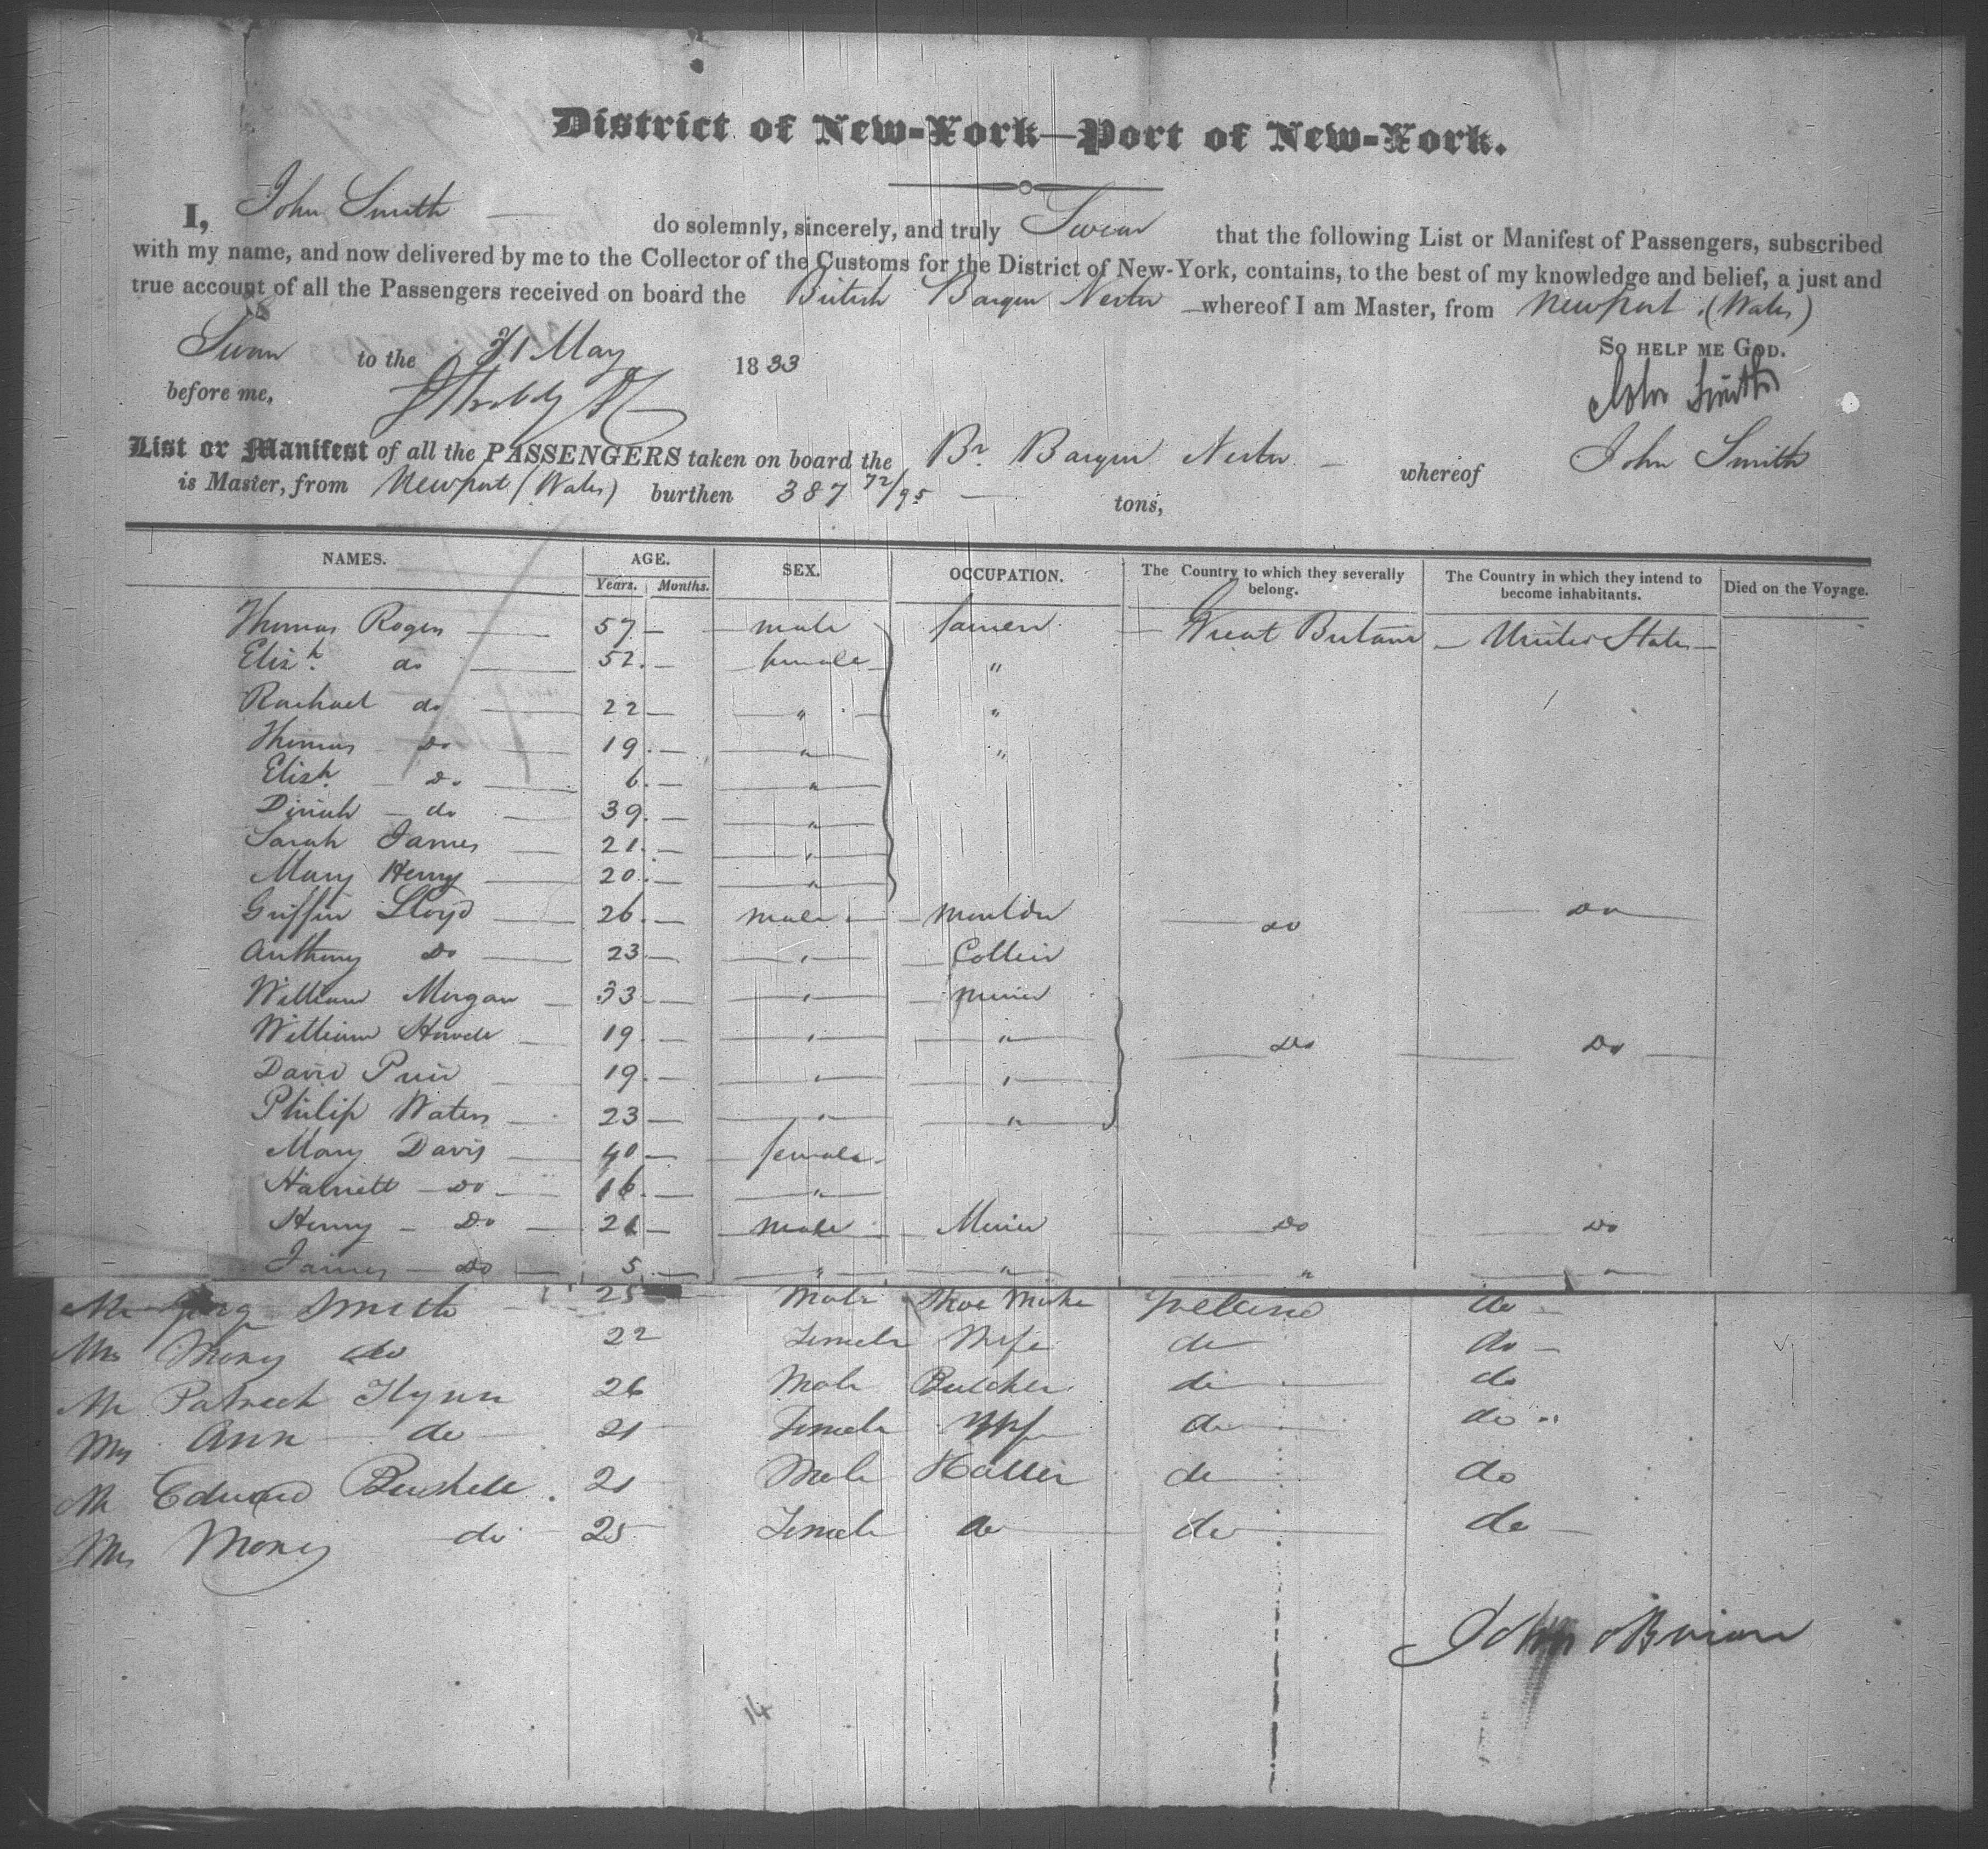 District of New-York—Port of New-York.
I, John Smith — do solemnly, sincerely, and truly Swear that the following List or Manifest of Passengers, subscribed
with my name, and now delivered by me to the Collector of the Customs for the District of New-York, contains, to the best of my knowledge and belief, a just and
true account of all the Passengers received on board the British Barque Nestor — whereof I am Master, from Newport (Wales)
Sworn to the 31 May 1833 So help me God.
before me, John Smith
List or Manifest of all the PASSENGERS taken on board the Br. Barque Nestor — whereof John Smith
is Master, from Newport (Wales) burthen 387 72/95 — tons,
NAMES. AGE. SEX. OCCUPATION. The Country to which they severally belong. The Country in which they intend to become inhabitants. Died on the Voyage.
Years. Months.
Thomas Roger — 57 — male farmer — Great Britain — United States —
Elizh. do — 52 — female "
Rachael do — 22 — " "
Thomas do — 19 — " "
Elizh. do — 6 — "
Dinah do — 39 — "
Sarah James — 21 — "
Mary Henry — 20 — "
Griffin Lloyd — 26 — male — moulder — do — do
Anthony Do — 23 — " — Collier
William Morgan — 33 — " — miner
William — 19 — " — " — Do — Do
David — 19 — " — "
Philip Waters — 23 — " — "
Mary Davis — 40 — female
Harriett — Do — 16 — "
Henry — Do — 21 — male — Miner — Do — Do
James — Do — 5 — " — " — " — "
Mr Smith 25 Male Shoe Make Ireland do —
Mrs Mary do 22 Female Wife do do —
Mr Patreck Flynn 26 Male Butcher do do
Mrs Ann do 21 Female Wife do do
Mr Edward Bushell 21 Male Hatter do do
Mrs Mary do 25 Female do do do
John OBrian
14